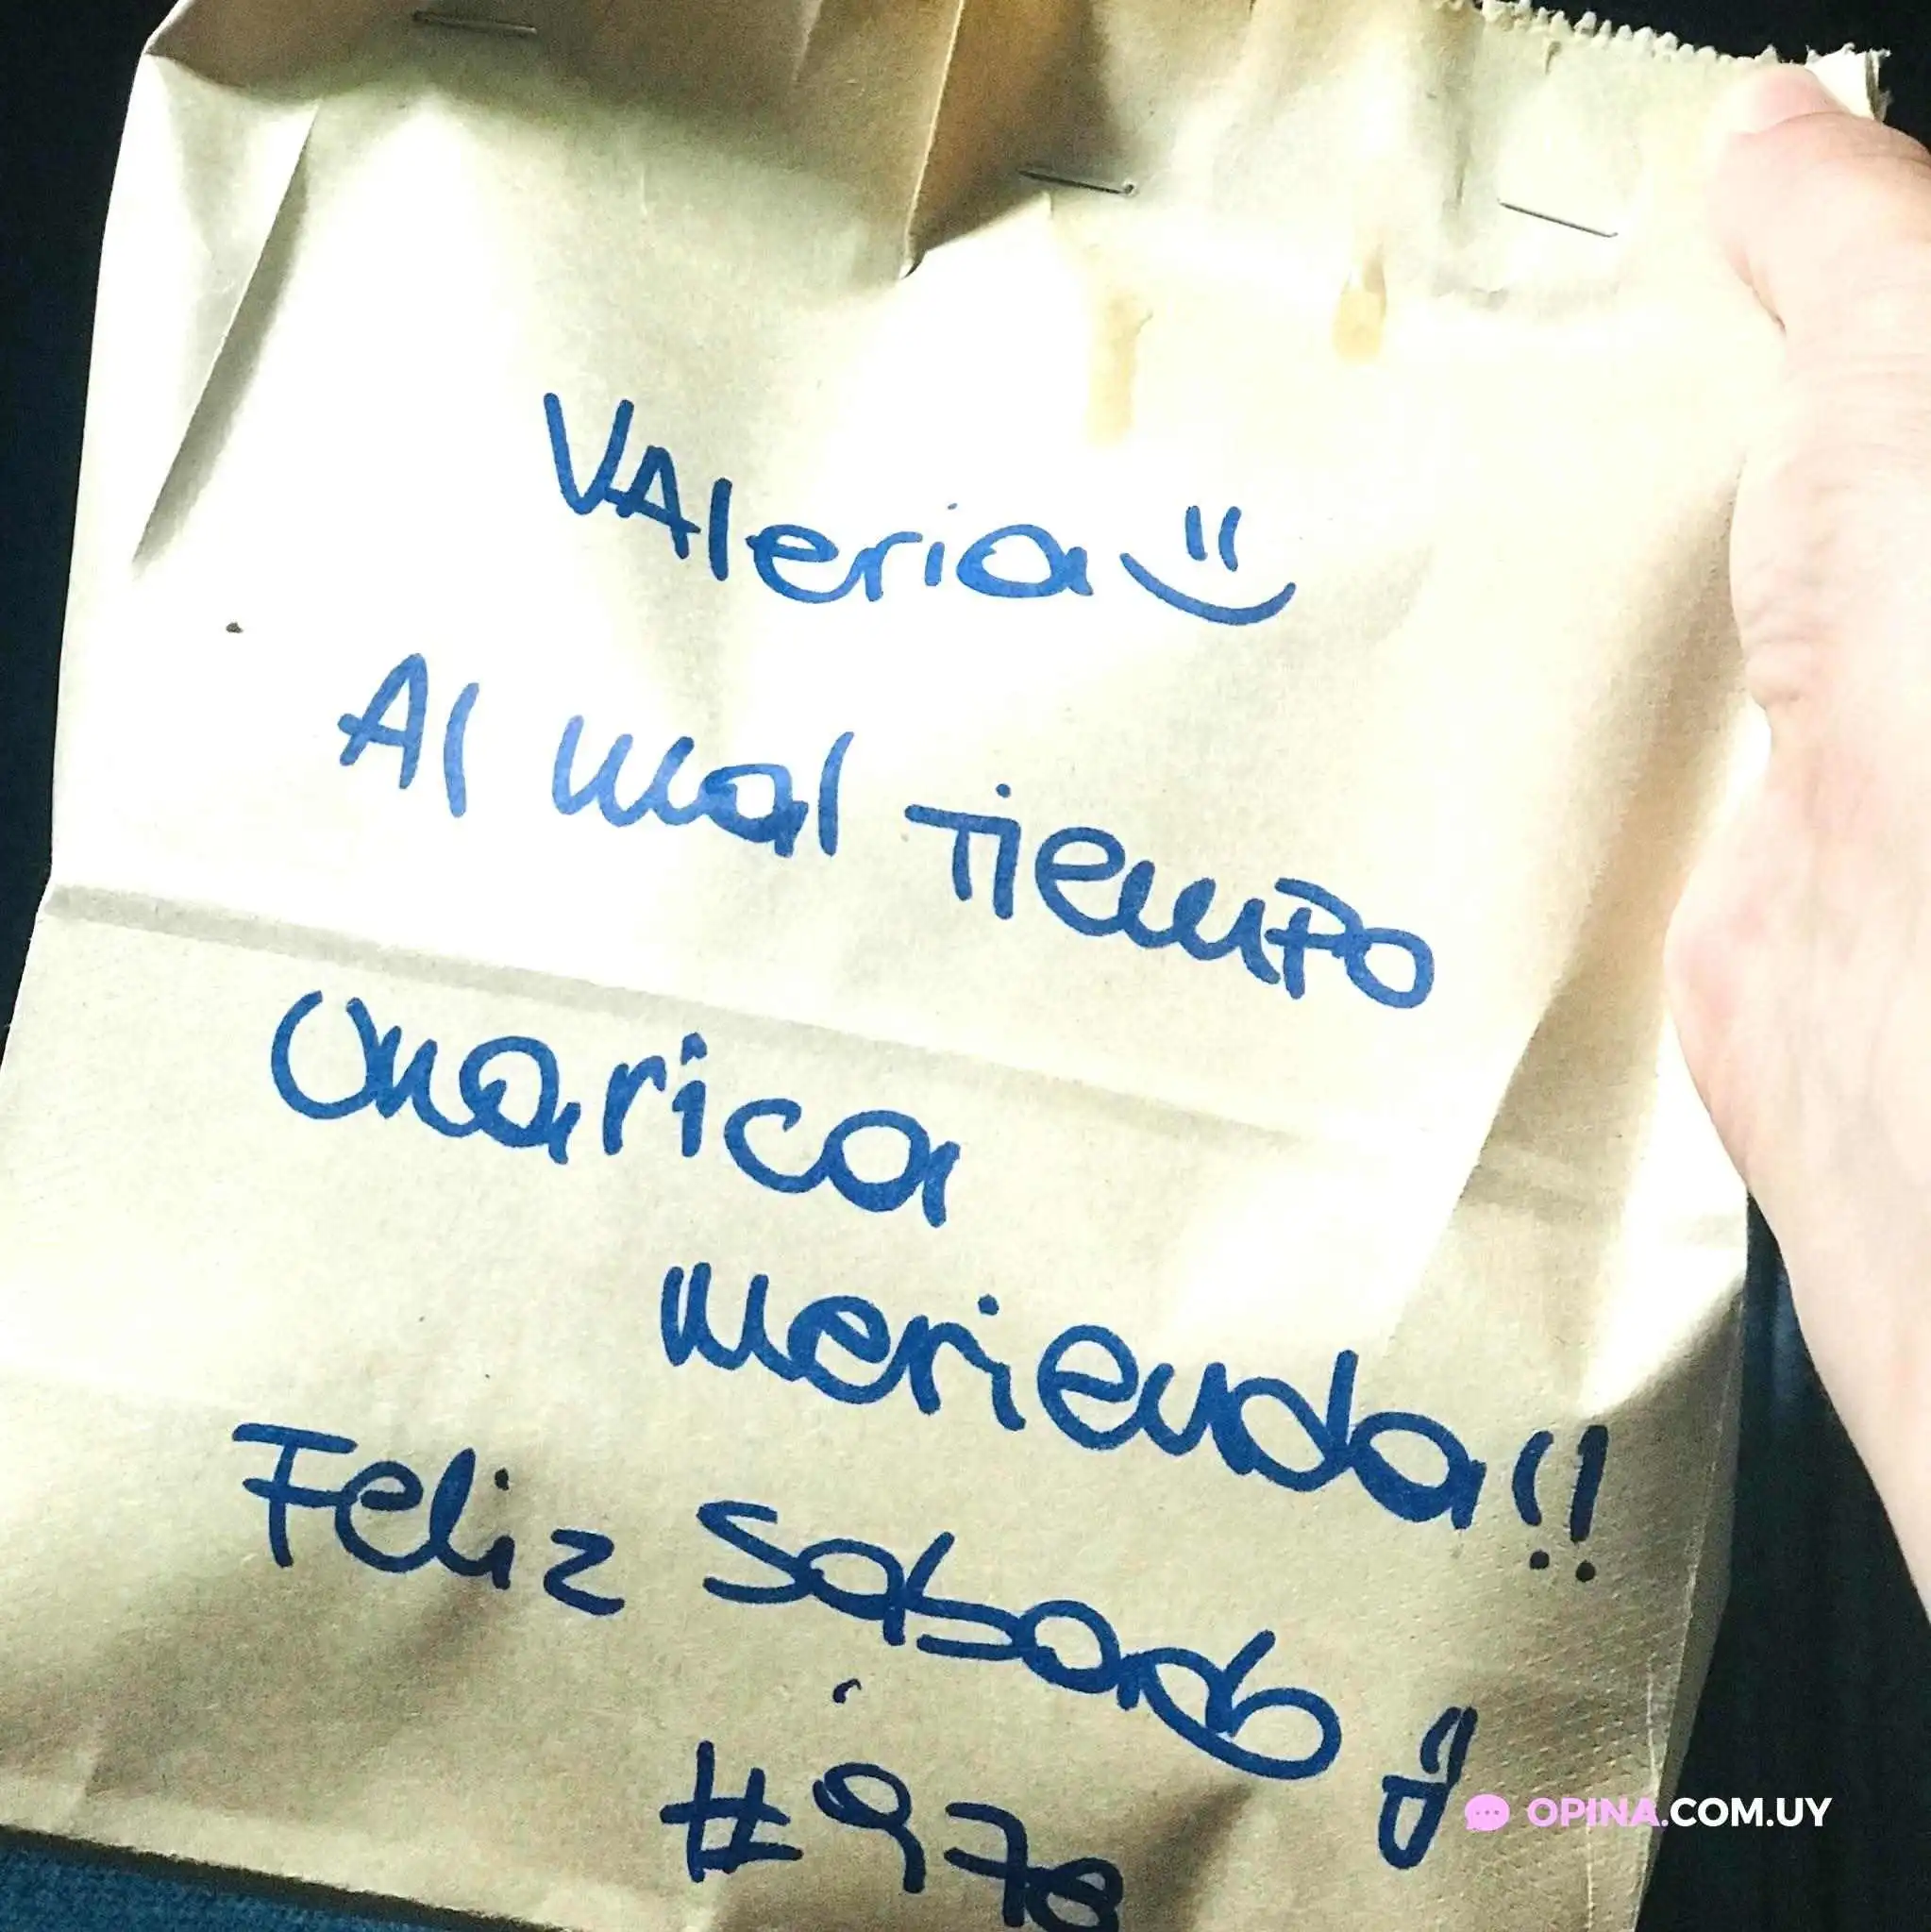 VAleria
Al mal Tiempo
Una rica
merienda!!
Feliz Sabado
#970
OPINA.COM.UY